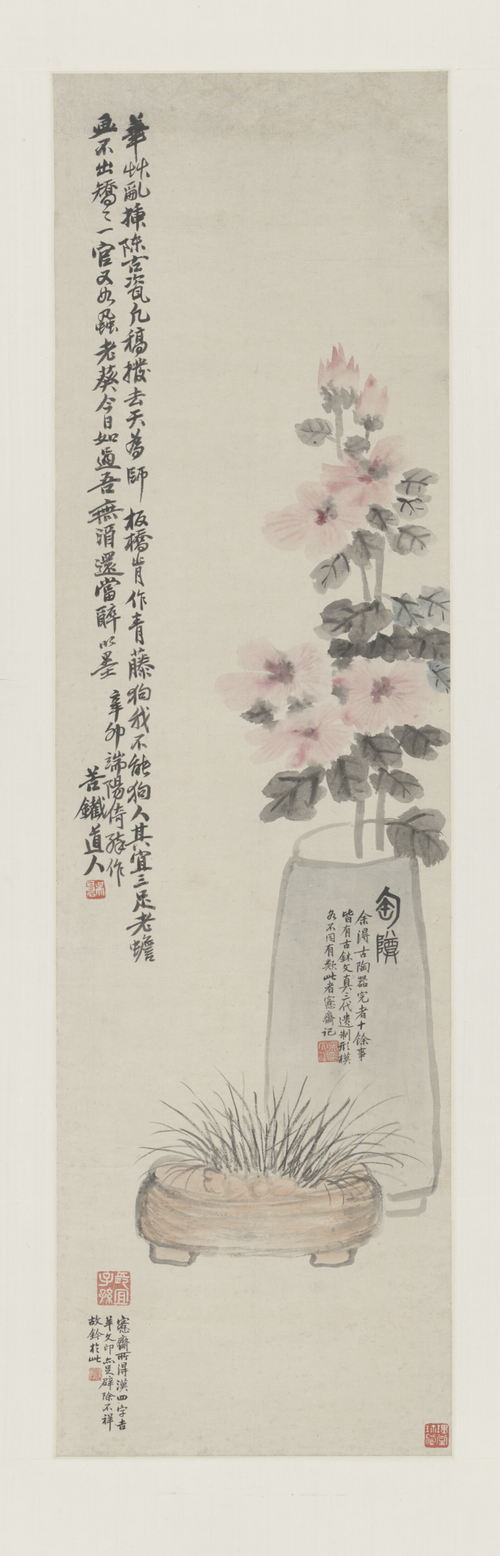 華艸亂揷陈古瓷凡稿撥去天為師 板橋肯作青藤狗我不能狗人其宜三足老蟾
畫不出矯〻一官又如蟲老葵今日如過吾無酒還當醉以墨 辛卯端陽倚醉作
苦鐵道人
匋罇
余得古陶器完者十餘事
皆有古鉥文真三代遺制形模
各不同有類此者愙齋記
愙齋所得漢四字吉
羊文印亦足辟除不祥
故鈐於此